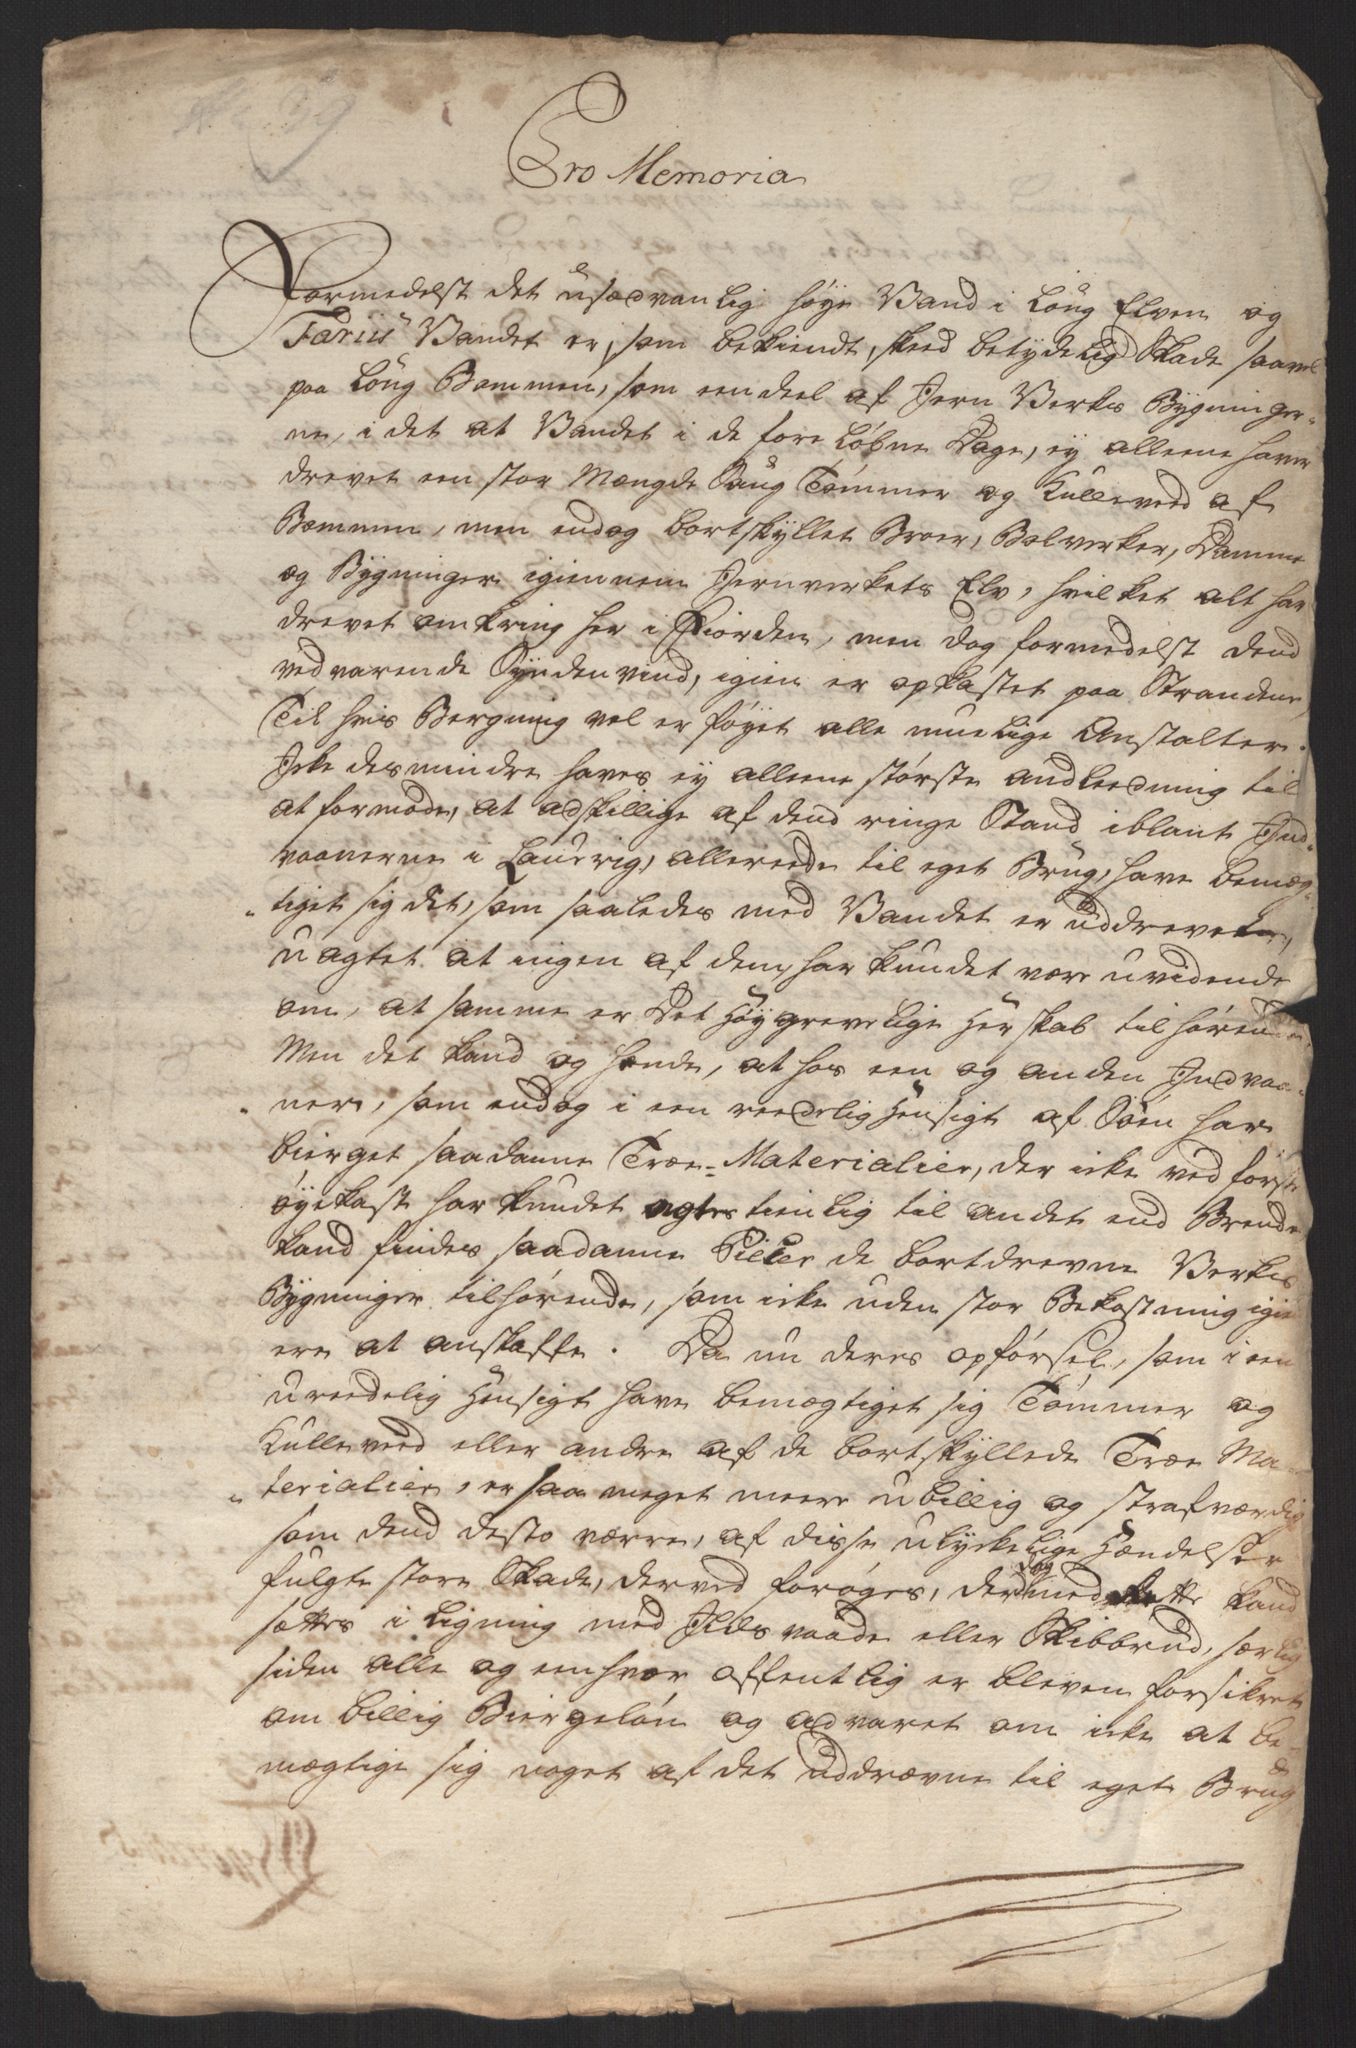 No 39
Pro Memoria
Formedelst det usædvanlig høye Vand i Loug Elven og
Fariis Vandet er, som bekiendt, skeed betydelig Skade saavel
paa Loug Bommen, som een deel af Jern Verks Bygninger-
ne, i det at Vandet i de foreløbne Dage, ey alleene haver
drevet een stor Mængde Saug Tømmer og Kulleveed af
Bommen, men endog bortskyllet Broer, Bolverker, Damme
og Bygninger igiennem Jernverkets Elv, hvilket alt har
drevet omkring her i Fiorden, men dog formedelst dend
vedvarende Syndenvind, igien er opkastet paa Strandene,
Til hvis Bergning vel er føyet alle muelige Anstalter.
Icke desmindre haves ey alleene største andleedning til
at formode, at adskillige af dend ringe Stand iblant Ind-
vaanerne i Laurvig, allereede til eget Brug, have bemæg-
tiget sig det, som saaledes med Vandet er uddrevet,
uagtet at ingen af dem, har kundet være uvidende
om, at samme er Det Høygrevelige Herskab tilhørende.
Men det kand og hænde, at hos een og anden Indvaa-
nere, som endog i een reedelig Hensigt af Søen har
bierget saadanne Træe-Materialier, der icke ved første
øyekast har kundet agtes tienlig til andet end Brende
kand findes saadanne Piecer de bortdrevne Verks
Bygninger tilhørende, som icke uden stor Bekostning igien
ere at anskaffe. Da nu deres opførsel, som i een
ureedelig Hensigt have bemægtiget sig Tømmer og
Kulleveed eller andre af de bortskyllede Træe Ma-
terialier, er saa meget meere ubillig og strafværdig
som dend desto værre, af disse ulyckelige Hændelser
fulgte store Skade, derved forøges, der med kand
sættes i Ligning med Ildsvaade eller Skibbrud, særlig
siden alle og eenhver offentlig er bleven forsikret
om billig Biergeløn og advaret om icke at be-
mægtige sig noget af det uddrævne til eget Brug